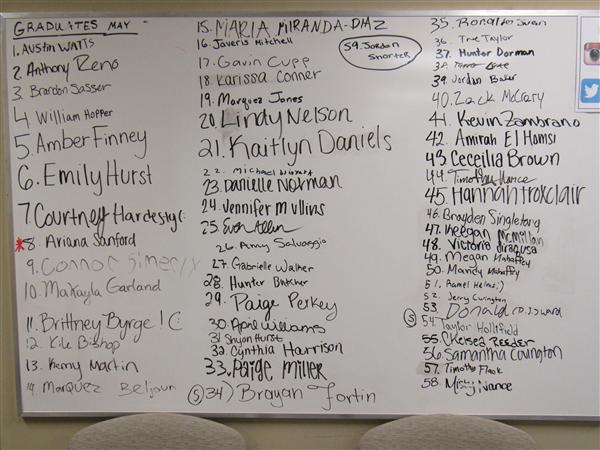 GRADUATES MAY
1. AUSTIN WATTS
2. Anthony Reno
3. Brandon Sasser
4 William Hopper
5. Amber Finney
6. Emily Hurst
7. Courtney Hardesty
*8. Ariana Sanford
9. Connor
10. Makayla Garland
11. Brittney Byrge!
12. Kile Bishop
13. Kamy Martin
14. Marquez Beljour
15. MARIA MIRANDA-DIAZ
16. Javeris Mitchell
17. Gavin Cupp
18. Karissa Conner
19. Marquez Jones
20 Lindy Nelson
21. Kaitlyn Daniels
22. Michael
23. Danielle Norman
24. Jennifer Mullins
25. Evan Allen
26. Amy Salvaggio
27. Gabrielle Walker
28. Hunter Butcher
29. Paige Perkey
30. April Williams
31 Shyon Hurst
32. Cynthia Harrison
33. Paige Miller
5 34) Brayan Fortin
59. Jordan
Shorter
35. Ronald Swan
36. True Taylor
37. Hunter Dorman
38.
39. Jordan Baker
40. Zack McCrary
41. Kevin Zambrano
42. Amirah El Homsi
43 Cecelia Brown
44. Timothy
45. Hannah Troxclair
46. Brayden Singletary
47. Keegan McMillan
48. Victoria Siragusa
49. Megan Mahaffey
50. Mandy Mahaffey
51. Aamel Helms :)
52. Jerry Covington
53. Donald (D.J.) Ward
5 54. Taylor Hollifield
55. Chelsea Reeder
56. Samantha Covington
57. Timothy Flack
58. Misty Nance